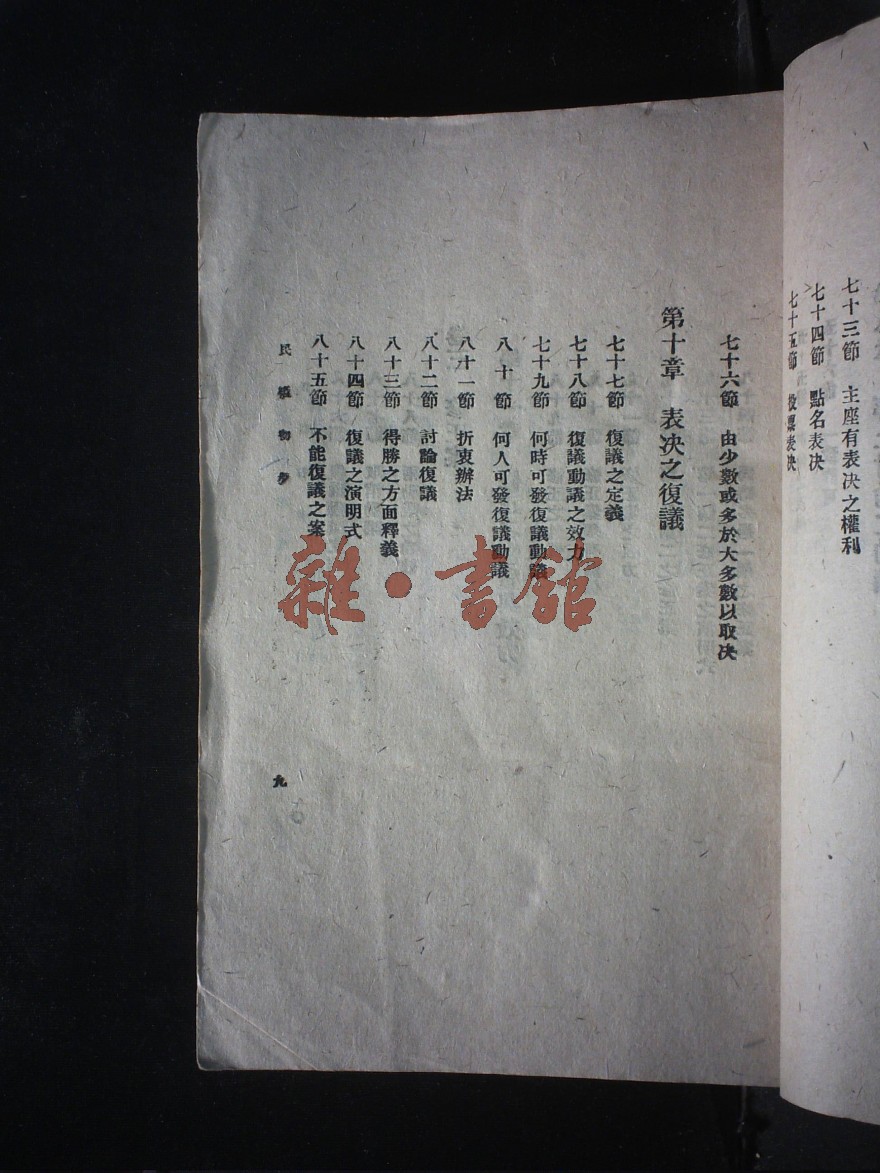 七十三節 主座有表决之權利
七十四節 點名表决
七十五節 投票表决
七十六節 由少數或多於大多數以取决
第十章 表决之復議
七十七節 復議之定義
七十八節 復議動議之效力
七十九節 何時可發復議動議
八十節 何人可發復議動議
八十一節 折衷辦法
八十二節 討論復議
八十三節 得勝之方面釋義
八十四節 復議之演明式
八十五節 不能復議之案
民權初步
九
雜·書館